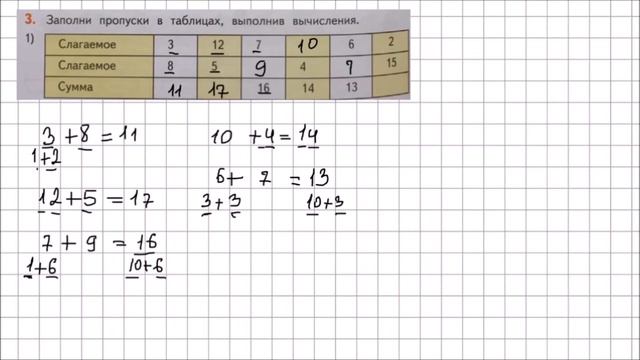 3. Заполни пропуски в таблицах, выполнив вычисления.
1)
Слагаемое 3 12 7 10 6 2
Слагаемое 8 5 9 4 7 15
Сумма 11 17 16 14 13
3 + 8 = 11
1+2
12+5 = 17
7 + 9 = 16
1+6 10+6
10 +4=14
6+ 7 = 13
3+3 10+3